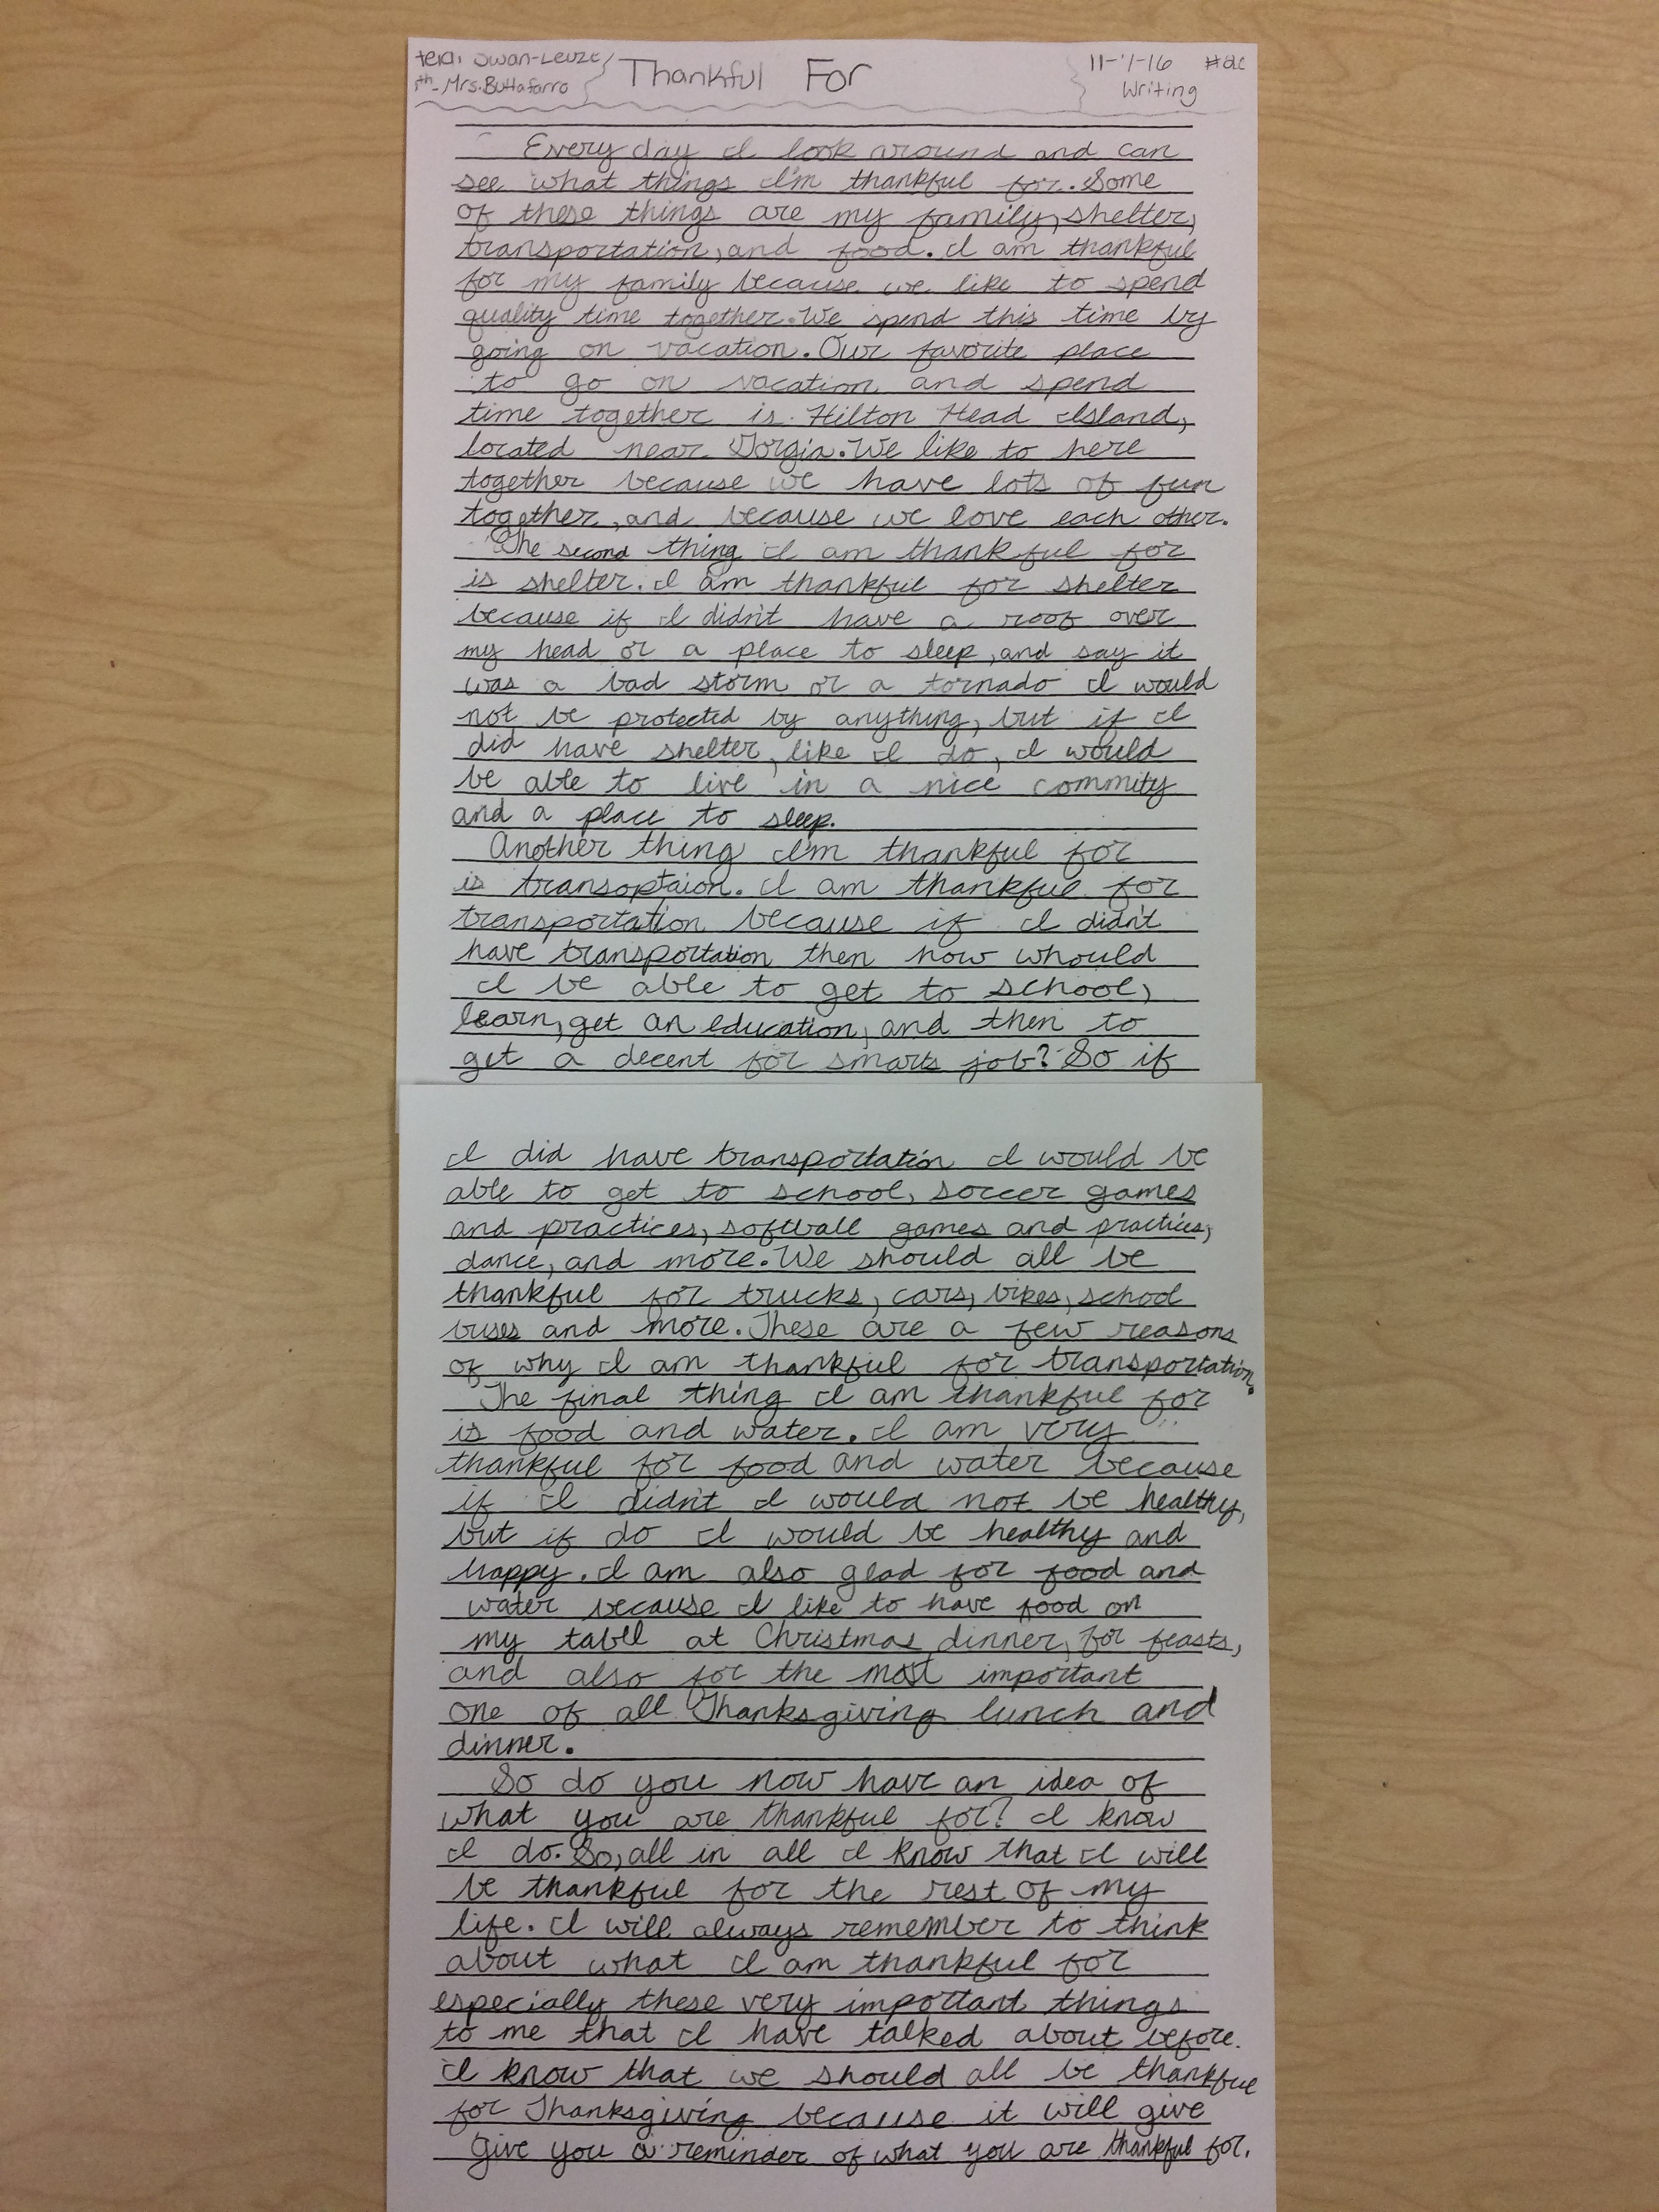 Swan-Leuze Thankful For 11-7-16
th- Mrs. Buttafarro Writing
Every day I look around and can
see what things I'm thankful for. Some
of these things are my family, shelter,
transportation, and food. I am thankful
for my family because we like to spend
quality time together. We spend this time by
going on vacation. Our favorite place
to go on vacation and spend
time together is Hilton Head Island,
located near Gorgia. We like to here
together because we have lots of fun
together, and because we love each other.
The second thing I am thankful for
is shelter. I am thankful for shelter
because if I didn't have a roof over
my head or a place to sleep, and say it
was a bad storm or a tornado I would
not be protected by anything, but if I
did have shelter, like I do, I would
be able to live in a nice commity
and a place to sleep.
Another thing I'm thankful for
is transoptaion. I am thankful for
transportation because if I didn't
have transportation then how whould
I be able to get to school,
learn, get an education, and then to
get a decent for smarts job? So if
I did have transportation I would be
able to get to school, soccer games
and practices, softball games and practices,
dance, and more. We should all be
thankful for trucks, cars, bikes, school
buses and more. These are a few reasons
of why I am thankful for transportation.
The final thing I am thankful for
is food and water. I am very
thankful for food and water because
if I didn't I would not be healthy,
but if do I would be healthy and
happy. I am also glad for food and
water because I like to have food on
my tabll at Christmas dinner, for feasts,
and also for the most important
one of all Thanksgiving lunch and
dinner.
So do you now have an idea of
what you are thankful for? I know
I do. So, all in all I know that I will
be thankful for the rest of my
life. I will always remember to think
about what I am thankful for
especially these very important things
to me that I have talked about before.
I know that we should all be thankful
for Thanksgiving because it will give
give you a reminder of what you are thankful for.